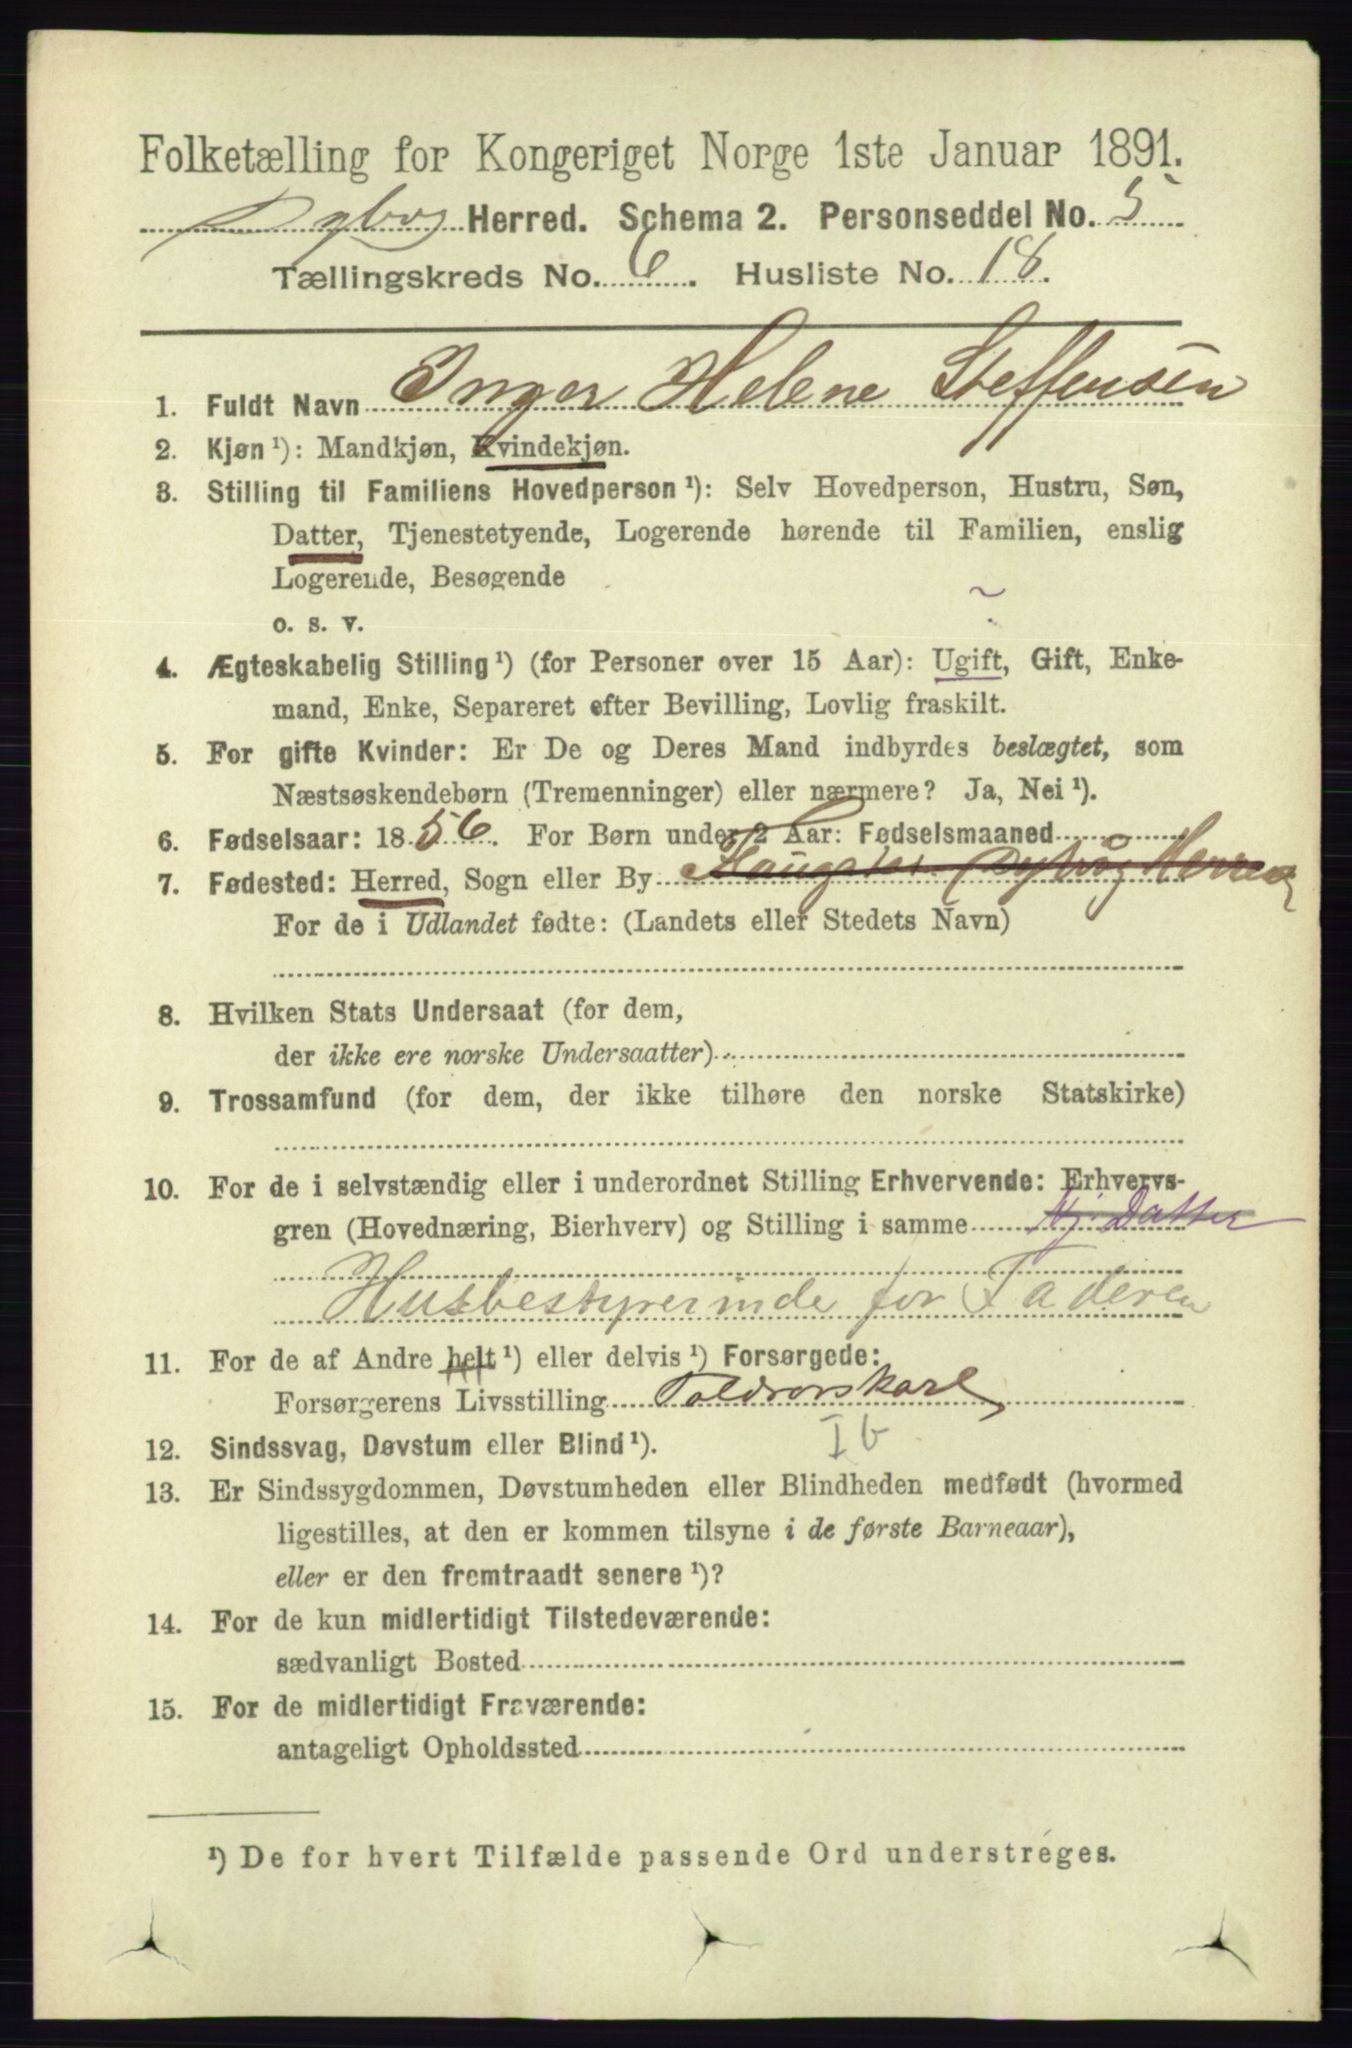 Folketælling for Kongeriget Norge 1ste Januar 1891.
Dybvåg Herred. Schema 2. Personseddel No. 5
Tællingskreds No. 6. Husliste No. 18.
1. Fuldt Navn Inger Helene Steffensen
2. Kjøn¹): Mandkjøn, Kvindekjøn.
3. Stilling til Familiens Hovedperson¹): Selv Hovedperson, Hustru, Søn,
Datter, Tjenestetyende, Logerende hørende til Familien, enslig
Logerende, Besøgende
o. s. v.
4. Ægteskabelig Stilling¹) (for Personer over 15 Aar): Ugift, Gift, Enke-
mand, Enke, Separeret efter Bevilling, Lovlig fraskilt.
5. For gifte Kvinder: Er De og Deres Mand indbyrdes beslægtet, som
Næstsøskendebørn (Tremenninger) eller nærmere? Ja, Nei¹).
6. Fødselsaar: 1856. For Børn under 2 Aar: Fødselsmaaned
7. Fødested: Herred, Sogn eller By Dybvåg Herred
For de i Udlandet fødte: (Landets eller Stedets Navn)
8. Hvilken Stats Undersaat (for dem,
der ikke ere norske Undersaatter)
9. Trossamfund (for dem, der ikke tilhøre den norske Statskirke)
10. For de i selvstændig eller i underordnet Stilling Erhvervende: Erhvervs-
gren (Hovednæring, Bierhverv) og Stilling i samme Hj. Datter
Husbestyrerinde for Faderen
11. For de af Andre helt¹) eller delvis¹) Forsørgede:
Forsørgerens Livsstilling Toldrorskarl
I b
12. Sindssvag, Døvstum eller Blind¹).
13. Er Sindssygdommen, Døvstumheden eller Blindheden medfødt (hvormed
ligestilles, at den er kommen tilsyne i de første Barneaar),
eller er den fremtraadt senere¹)?
14. For de kun midlertidigt Tilstedeværende:
sædvanligt Bosted
15. For de midlertidigt Fraværende:
antageligt Opholdssted
¹) De for hvert Tilfælde passende Ord understreges.